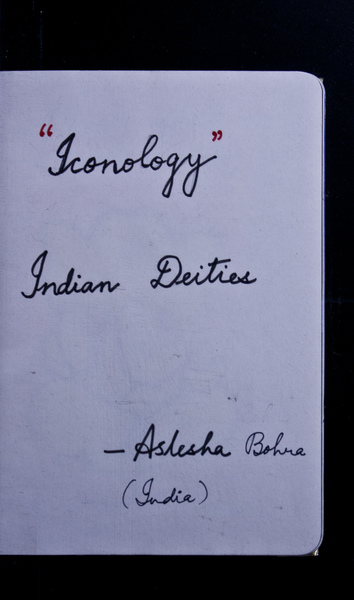 “Iconology”
Indian Deities
— Aslesha Bohra
(India)